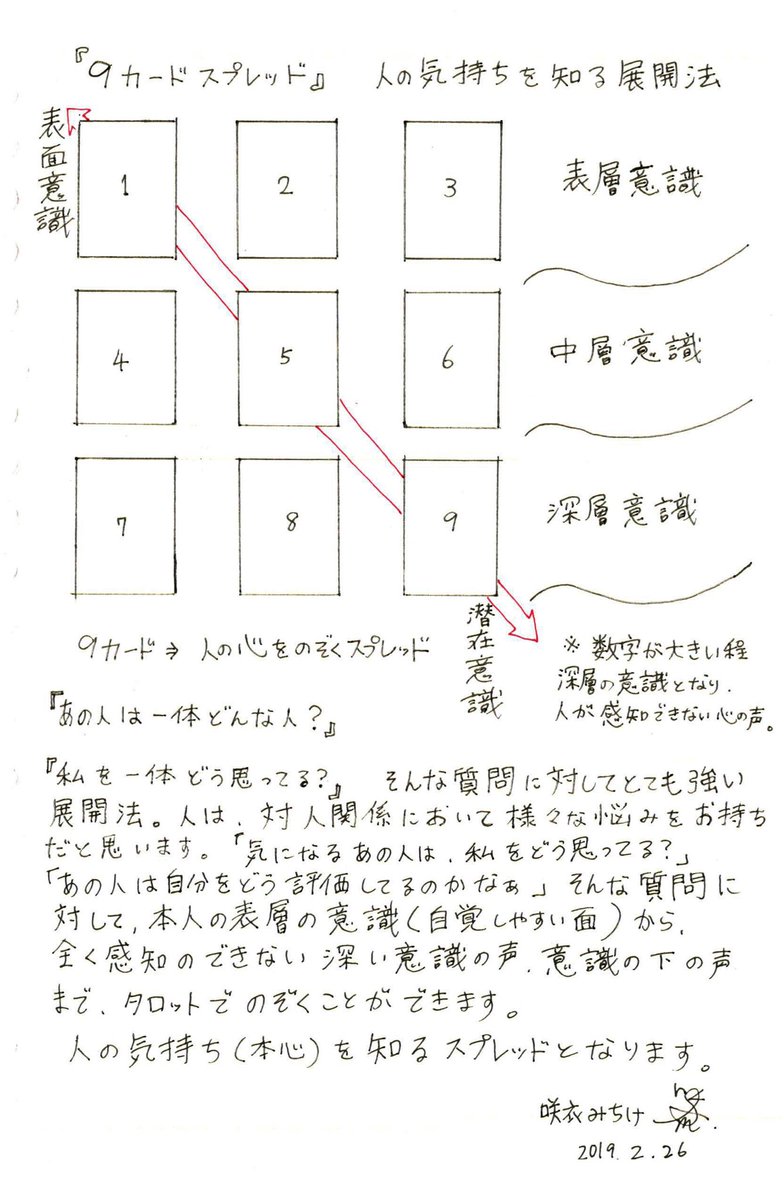 『9カードスプレッド』 人の気持ちを知る展開法
表面意識
1 2 3 表層意識
4 5 6 中層意識
7 8 9 深層意識
潜在意識
9カード⇒人の心をのぞくスプレッド
※数字が大きい程
深層の意識となり、
人が感知できない心の声。
『あの人は一体どんな人?』
『私を一体どう思ってる?』 そんな質問に対してとても強い
展開法。人は、対人関係において様々な悩みをお持ち
だと思います。「気になるあの人は、私をどう思ってる?」
「あの人は自分をどう評価してるのかなぁ」そんな質問に
対して、本人の表層の意識(自覚しやすい面)から、
全く感知のできない深い意識の声、意識の下の声
まで、タロットでのぞくことができます。
人の気持ち(本心)を知るスプレッドとなります。
咲衣みちけ
2019.2.26